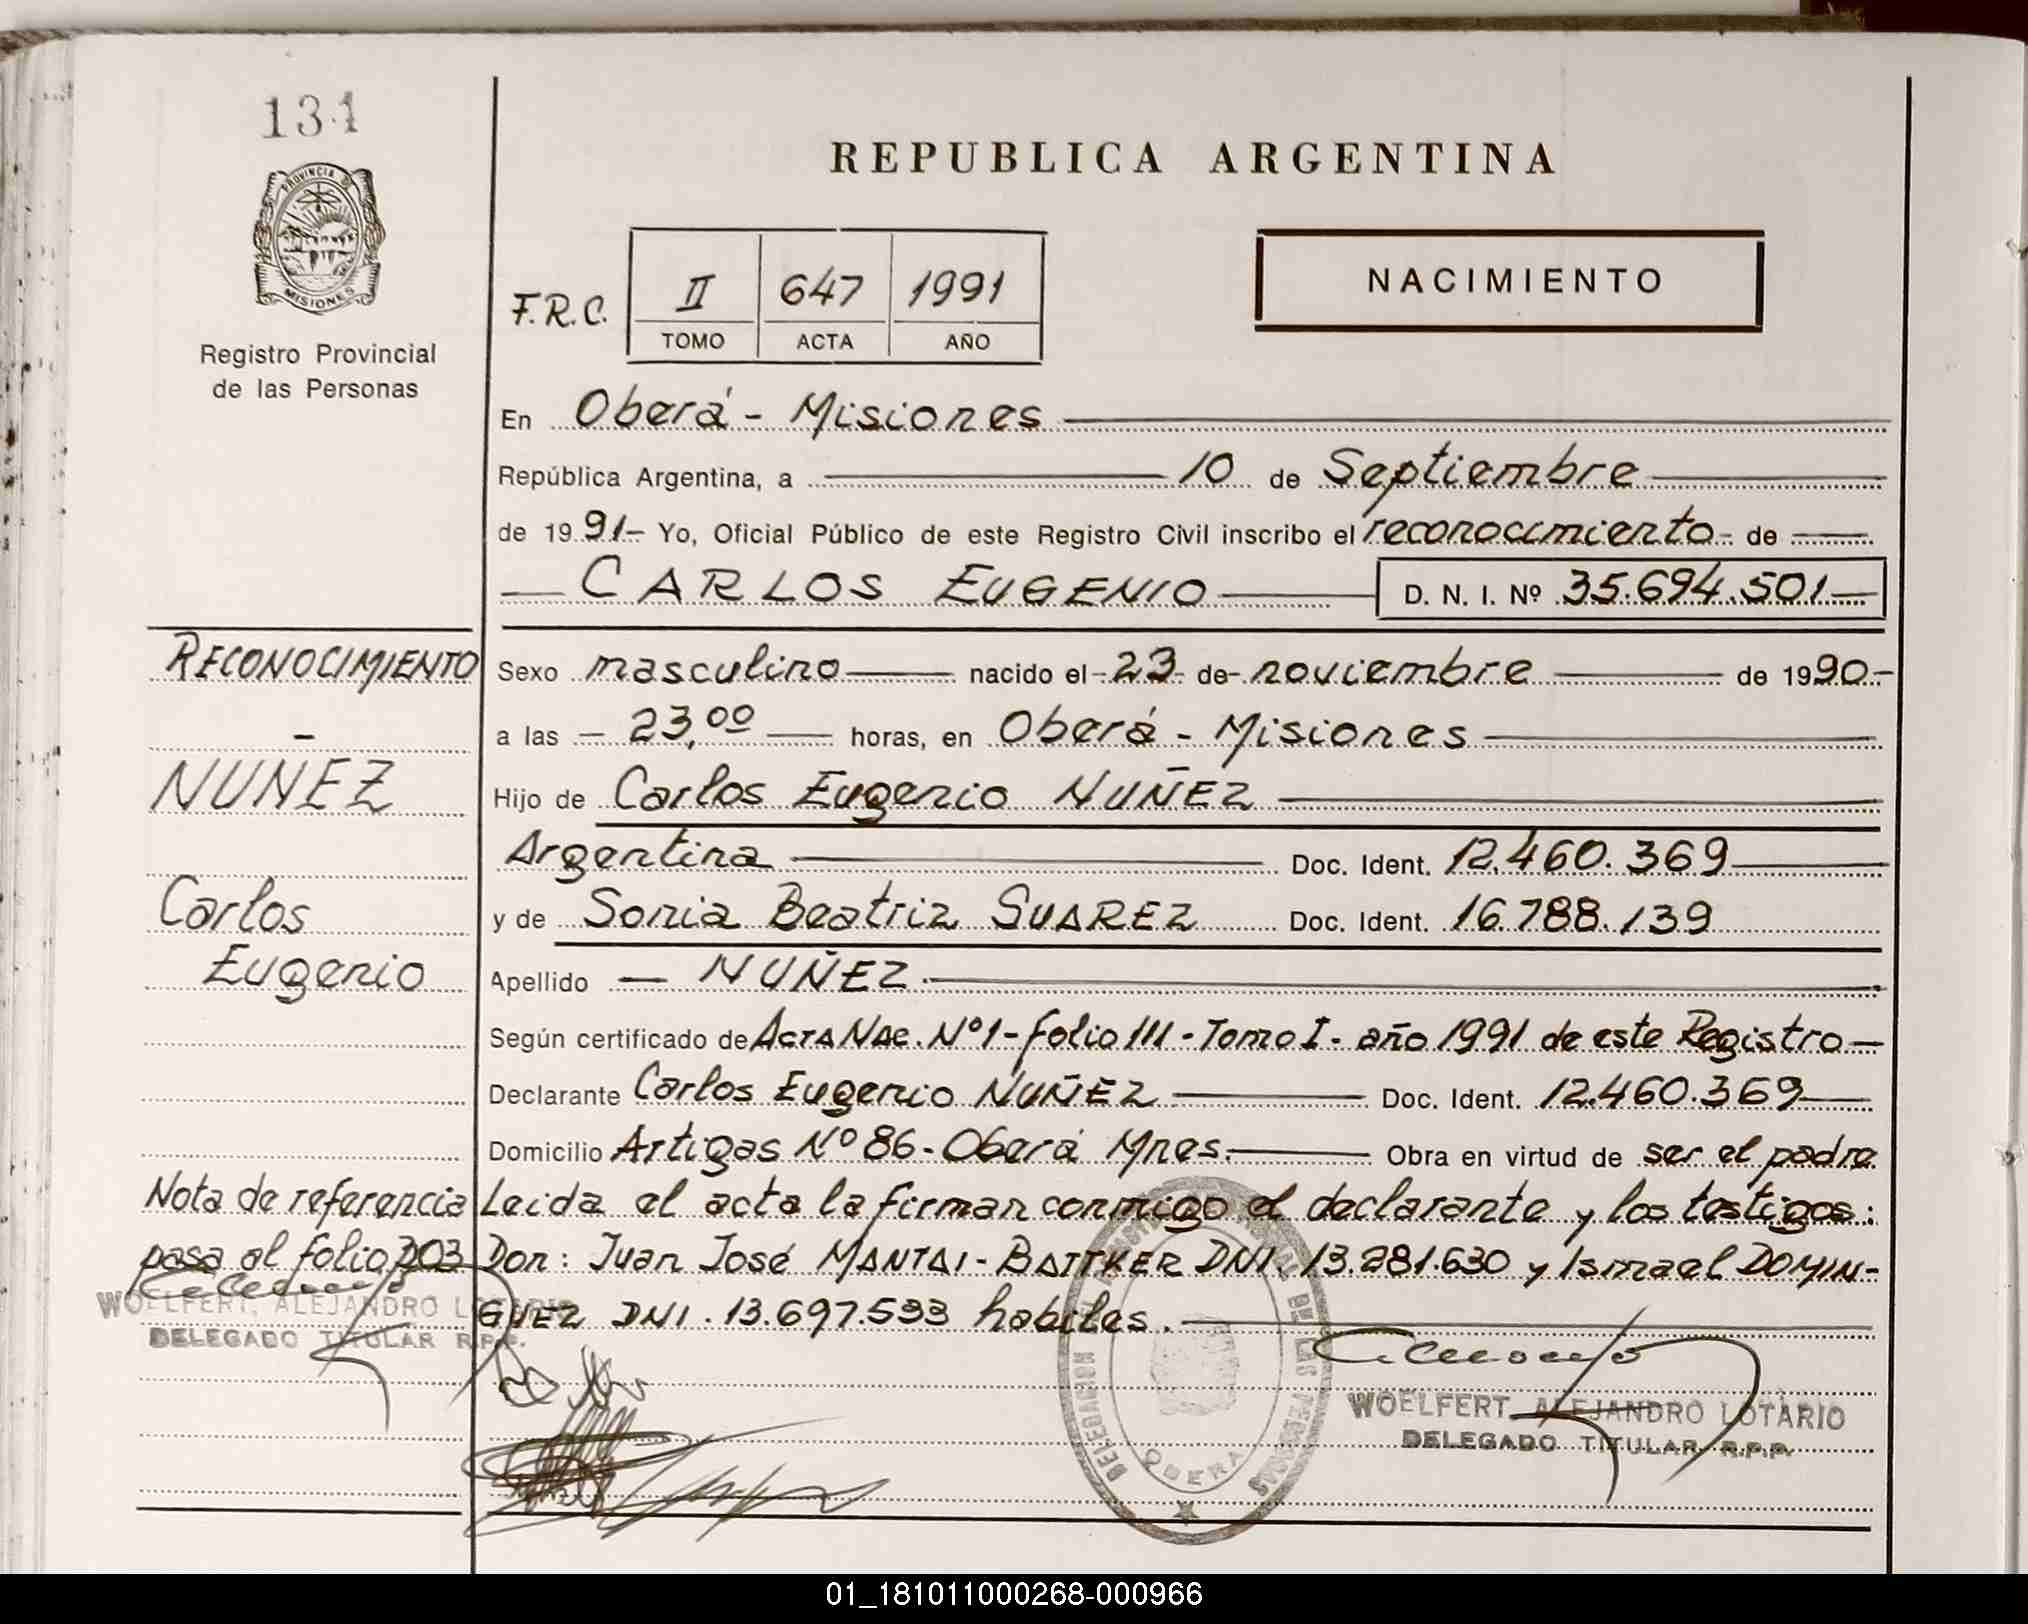 131
PROVINCIA DE
MISIONES
Registro Provincial
de las Personas
REPUBLICA ARGENTINA
NACIMIENTO
F.R.C. II 647 1991
TOMO ACTA AÑO
En Oberá - Misiones
República Argentina, a 10 de Septiembre
de 1991- Yo, Oficial Público de este Registro Civil inscribo el reconocimiento- de
CARLOS EUGENIO D. N. I. Nº 35.694.501
RECONOCIMIENTO
-
NUÑEZ
Carlos
Eugenio
Sexo masculino nacido el 23 de noviembre de 1990-
a las - 23,00 horas, en Oberá - Misiones
Hijo de Carlos Eugenio NUÑEZ
Argentina Doc. Ident. 12.460.369
y de Sonia Beatriz SUAREZ Doc. Ident. 16.788.139
Apellido - NUÑEZ.
Según certificado de Acta Nac. Nº 1 - folio 111 - Tomo I - año 1991 de este Registro
Declarante Carlos Eugenio NUÑEZ Doc. Ident. 12.460.369
Domicilio Artigas Nº 86 - Oberá Mnes. Obra en virtud de ser el padre
Leida el acta la firman conmigo el declarante y los testigos:
Don: Juan José MANTAI - BATTKER DNI. 13.281.630 y Ismael DOMIN-
GUEZ DNI. 13.697.533 habiles.
Nota de referencia
pasa al folio 203
WOELFERT, ALEJANDRO LOTARIO
DELEGADO TITULAR R.P.P.
OBERA
WOELFERT, ALEJANDRO LOTARIO
DELEGADO TITULAR R.P.P.
01_181011000268-000966